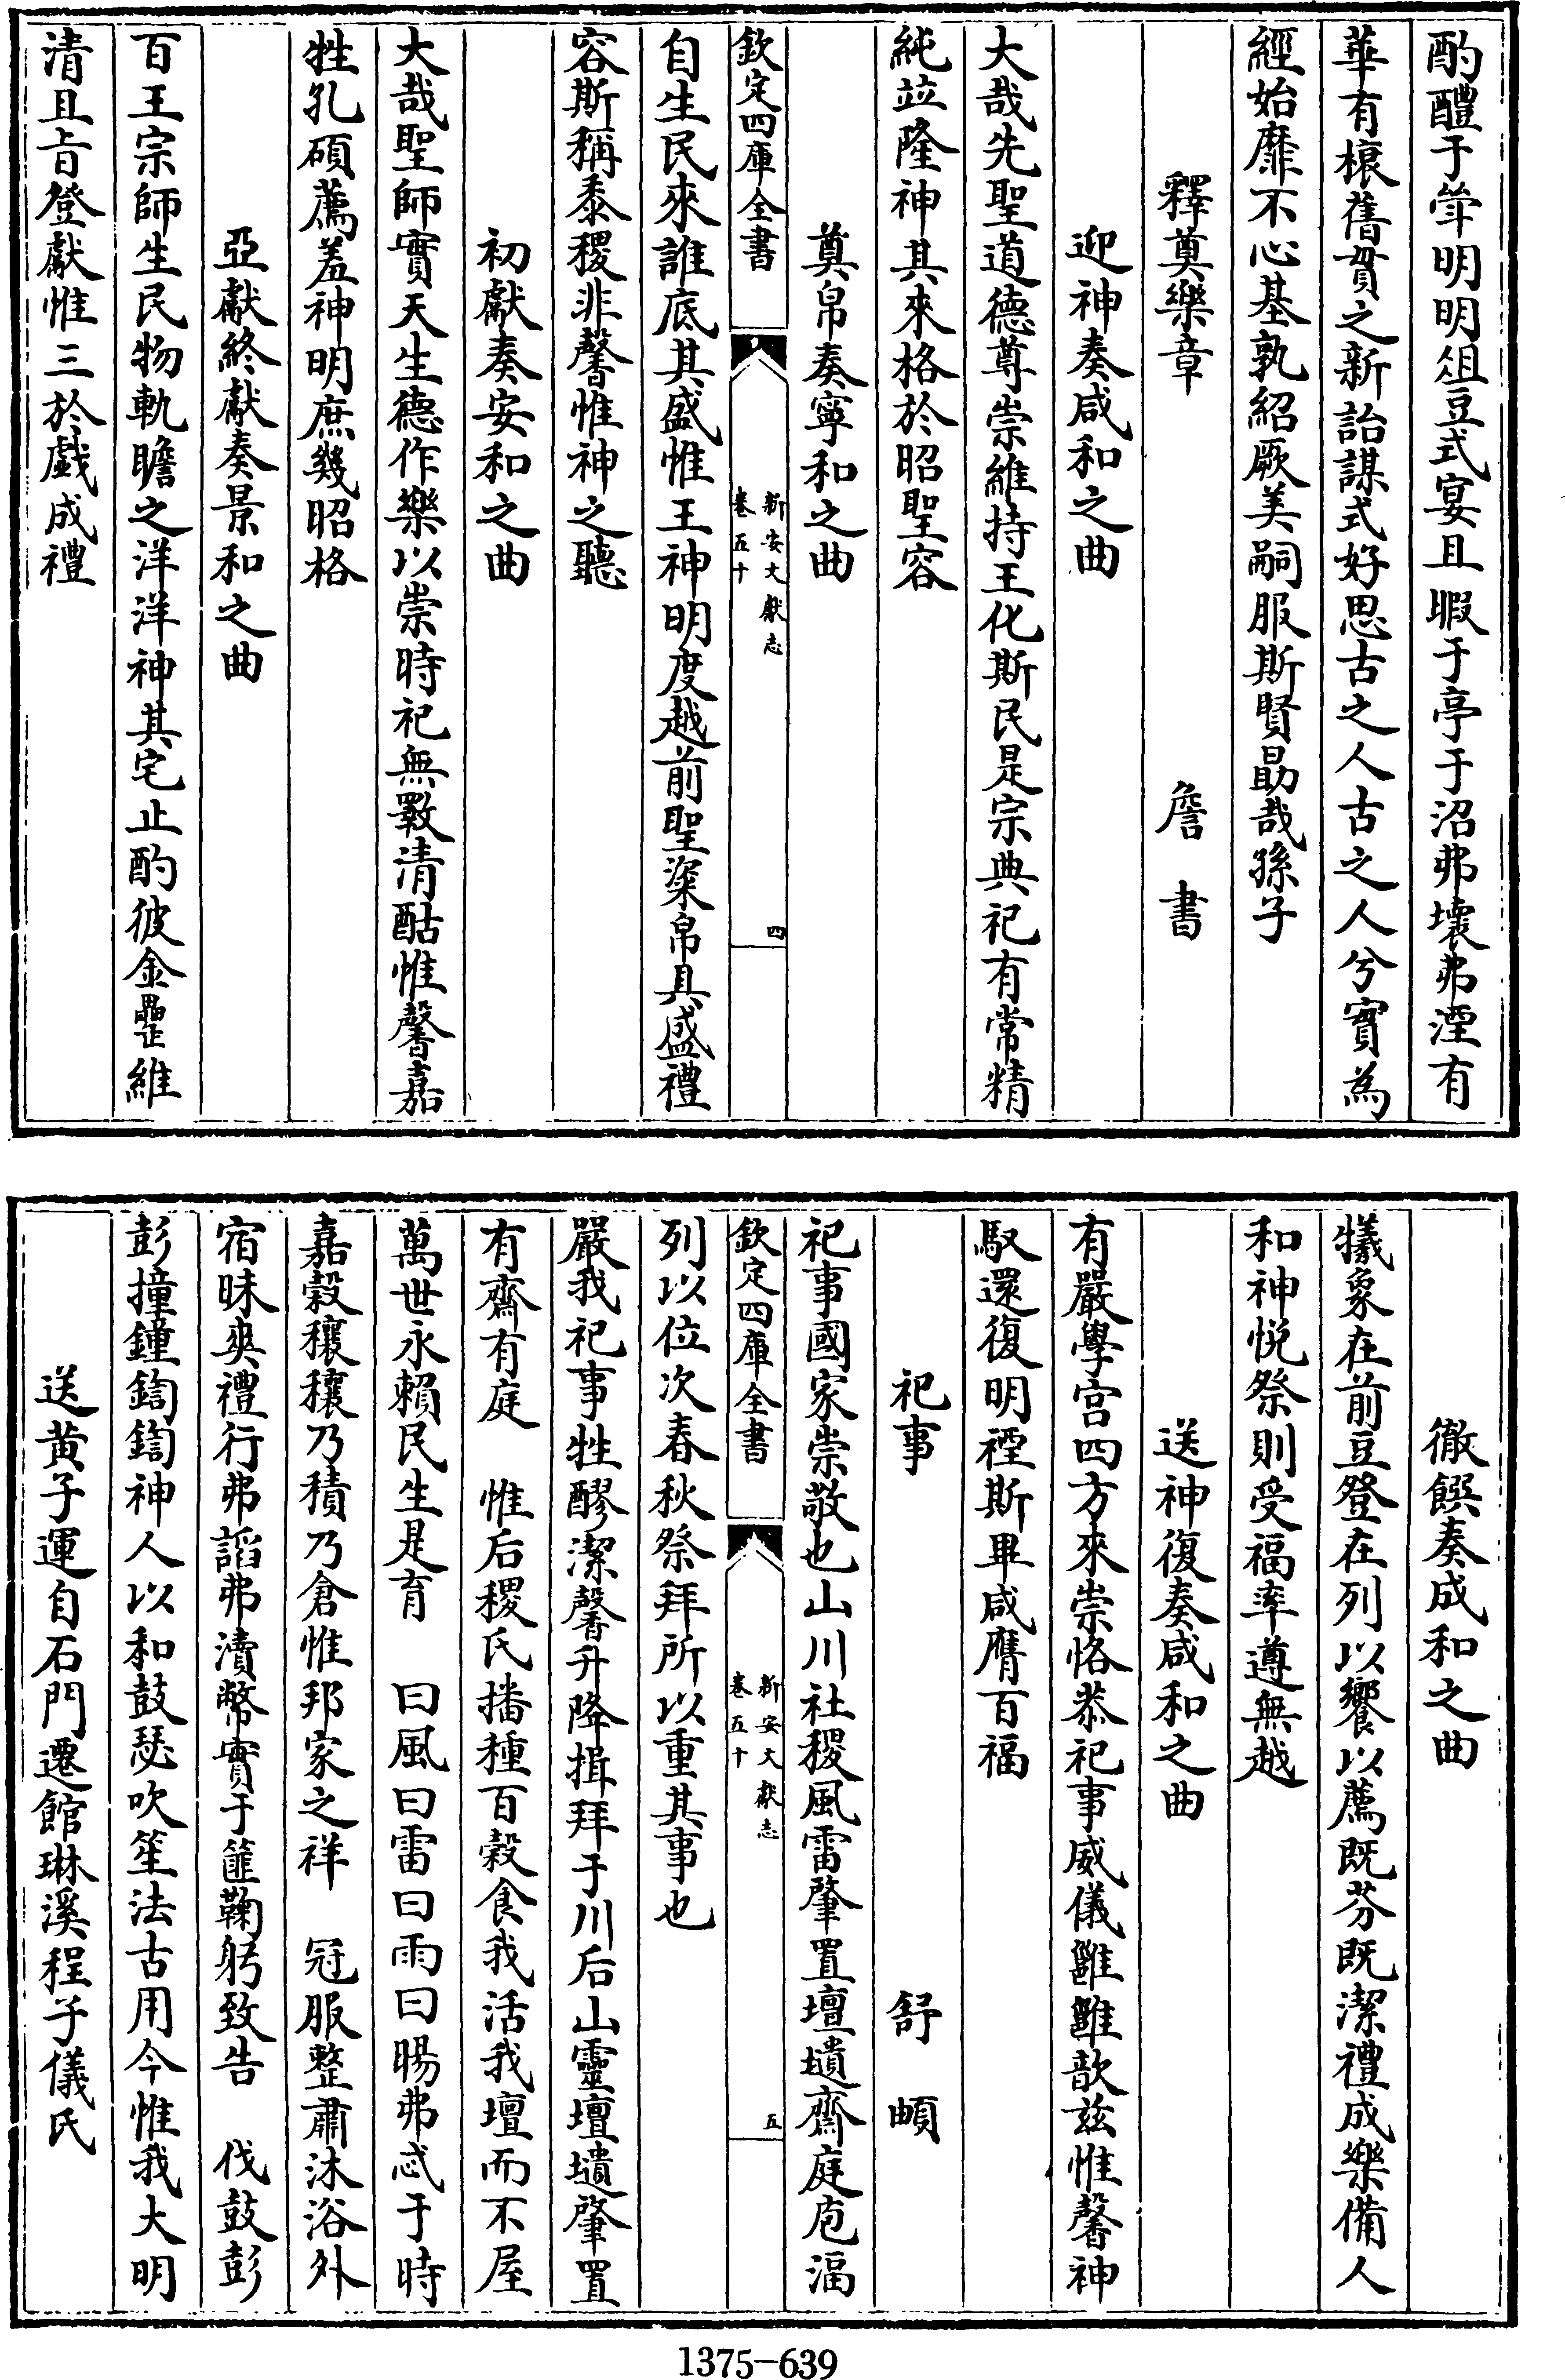 酌醴于斝明明俎豆式宴且暇于亭于沼弗壞弗湮有
華有榱舊貫之新詒謀式好思古之人古之人兮實為
經始靡不心基孰紹厥美嗣服斯賢勖哉孫子
釋奠樂章 詹書
迎神奏咸和之曲
大哉先聖道德尊崇維持王化斯民是宗典祀有常精
純竝隆神其來格於昭聖容
奠帛奏寧和之曲
欽定四庫全書 新安文獻志 卷五十 四
自生民來誰底其盛惟王神明度越前聖粢帛具盛禮
容斯稱黍稷非馨惟神之聽
初獻奏安和之曲
大哉聖師實天生德作樂以崇時祀無斁清酤惟馨嘉
牲孔碩薦羞神明庶幾昭格
亞獻終獻奏景和之曲
百王宗師生民物軌瞻之洋洋神其宅止酌彼金罍維
清且旨登獻惟三於戲成禮
徹饌奏成和之曲
犧象在前豆登在列以饗以薦既芬既潔禮成樂備人
和神悅祭則受福率遵無越
送神復奏咸和之曲
有嚴學宮四方來崇恪恭祀事威儀雝雝歆茲惟馨神
馭還復明禋斯畢咸膺百福
祀事 舒頔
祀事國家崇敬也山川社稷風雷肇置壇壝齋庭庖湢
欽定四庫全書 新安文獻志 卷五十 五
列以位次春秋祭拜所以重其事也
嚴我祀事牲醪潔馨升降揖拜于川后山靈壇壝肇置
有齋有庭 惟后稷氏播種百穀食我活我壇而不屋
萬世永賴民生是育 曰風曰雷曰雨曰暘弗忒于時
嘉穀穰穰乃積乃倉惟邦家之祥 冠服整肅沐浴外
宿昧爽禮行弗謟弗瀆幣實于篚鞠躬致告 伐鼓彭
彭撞鐘鍧鍧神人以和鼓瑟吹笙法古用今惟我大明
送黃子運自石門遷館琳溪程子儀氏
1375-639